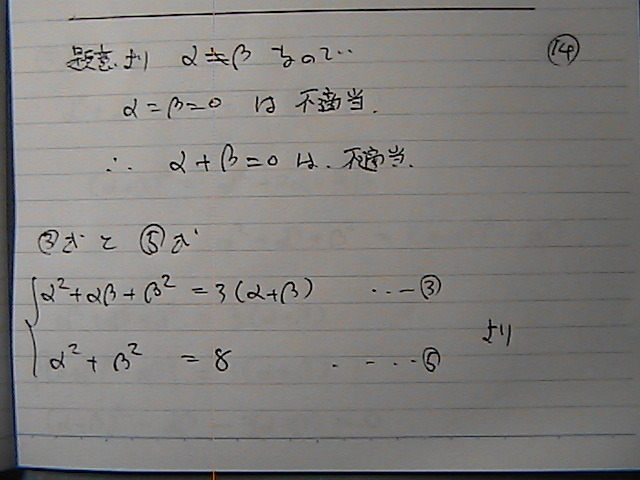 題意より α≠β なので‥
⑭
α=β=0 は 不適当.
∴ α+β=0は、不適当.
③式と ⑤式
α²+αβ+β² = 3(α+β) ‥‥③
より
α²+β² = 8 ‥‥⑤